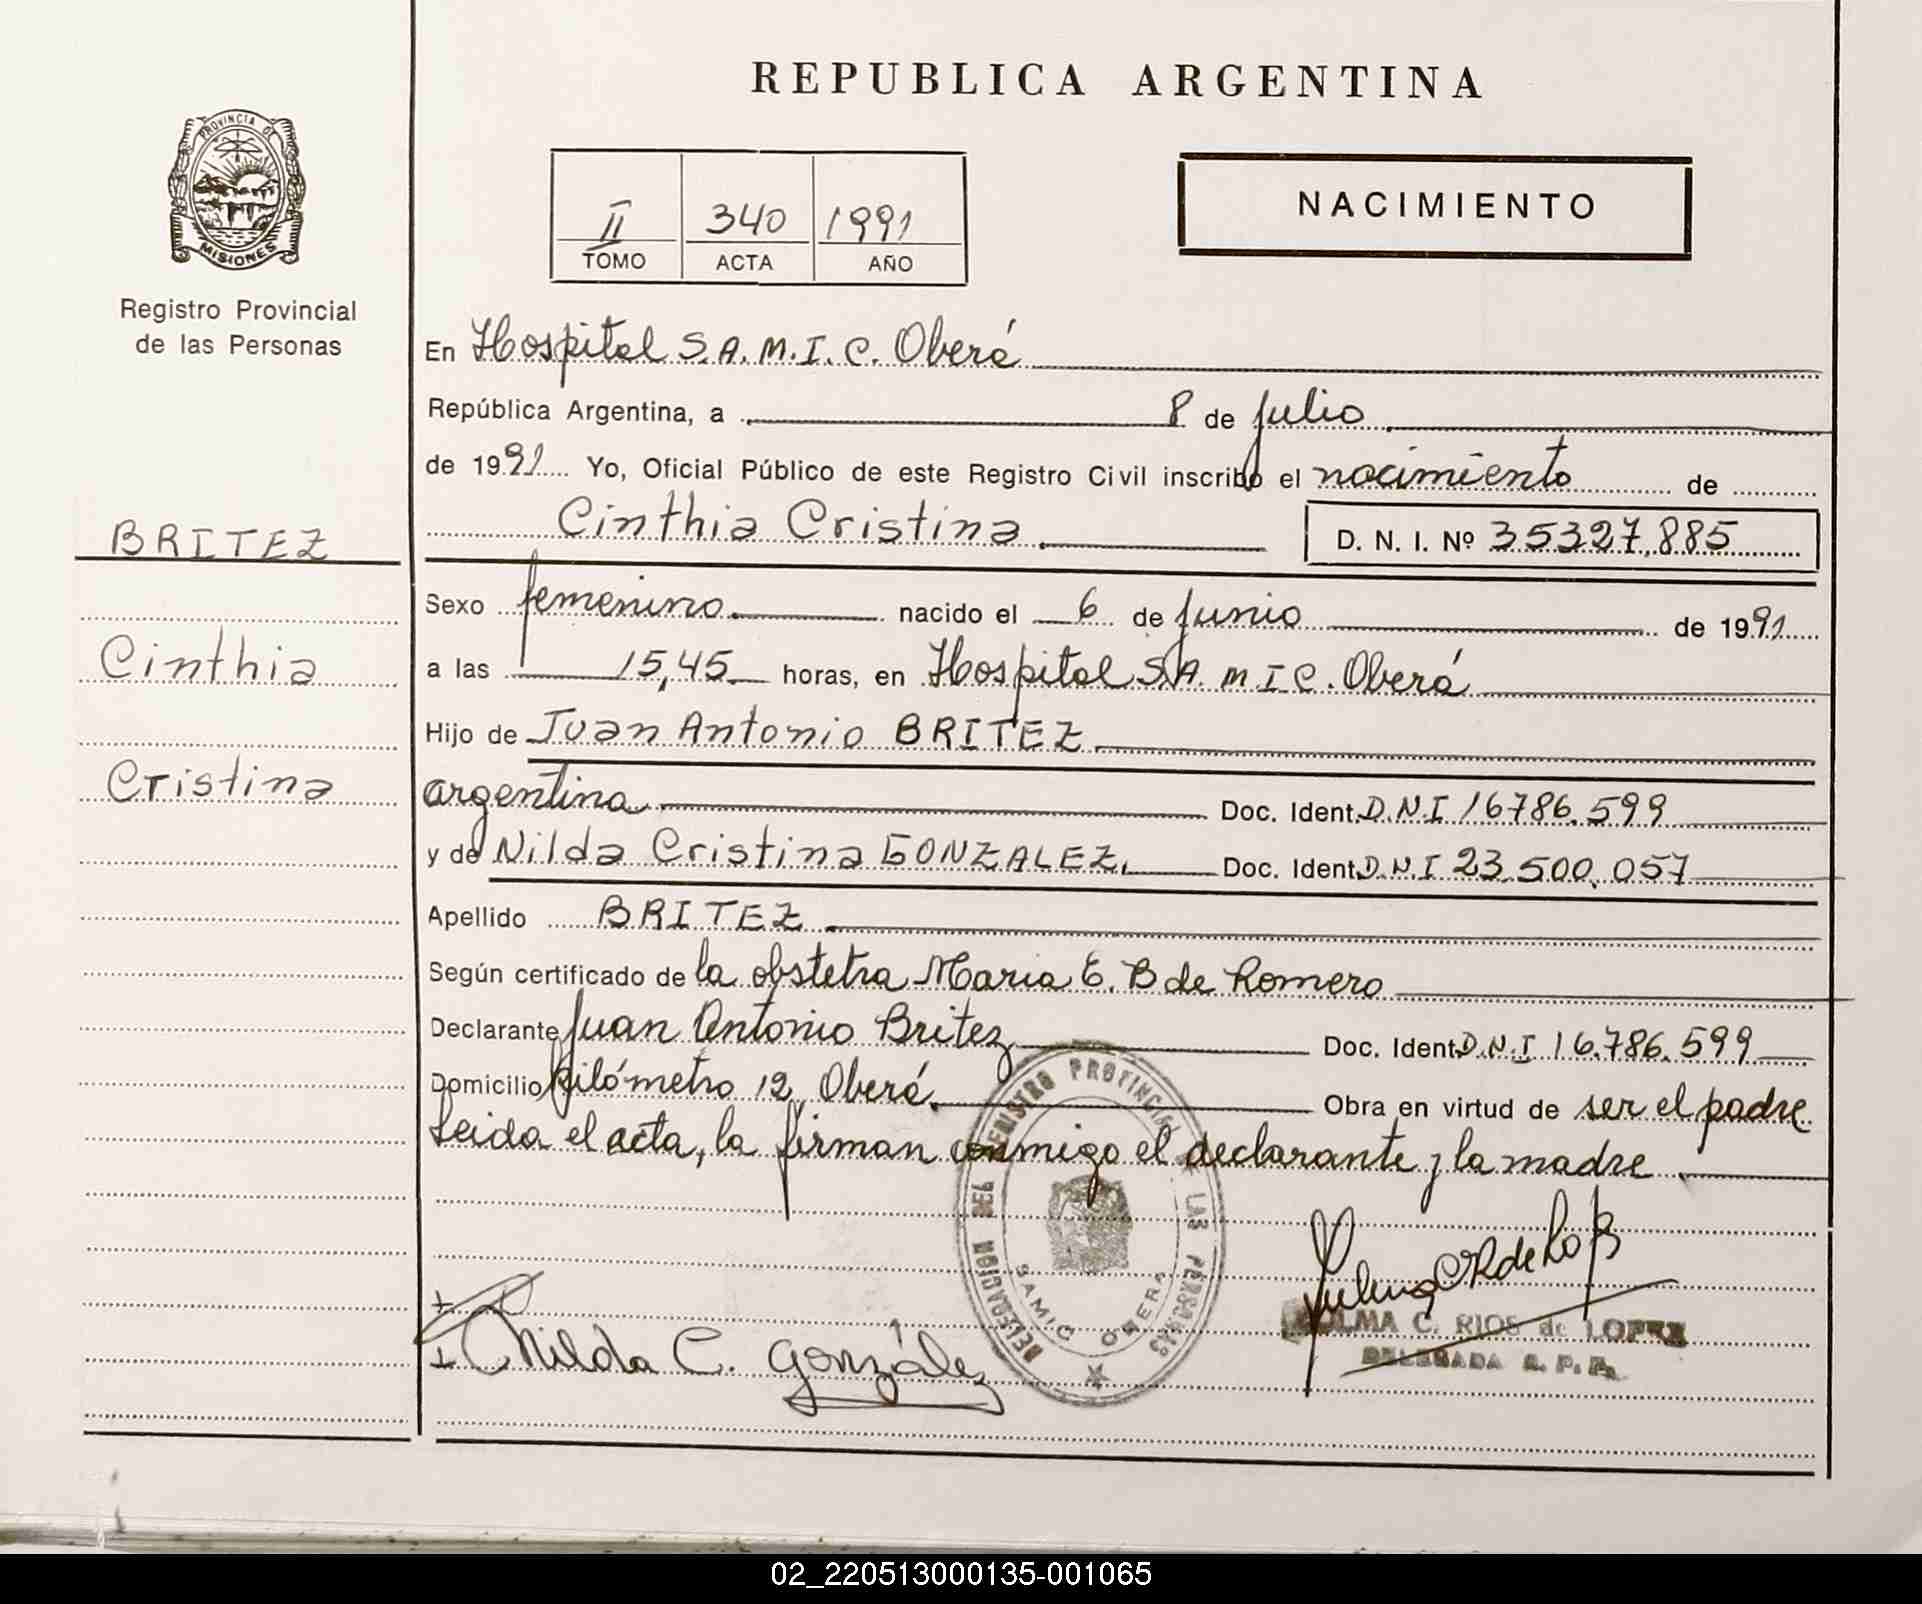 REPUBLICA ARGENTINA
PROVINCIA DE
MISIONES
Registro Provincial
de las Personas
II 340 1991
TOMO ACTA AÑO
NACIMIENTO
En Hospital S.A.M.I.C. Oberá
República Argentina, a 8 de Julio
de 1991 Yo, Oficial Público de este Registro Civil inscribo el nacimiento de
Cinthia Cristina D. N. I. Nº 35327.885
BRITEZ
Cinthia
Cristina
Sexo femenino nacido el 6 de Junio de 1991
a las 15,45 horas, en Hospital S.A.M.I.C. Oberá
Hijo de Juan Antonio BRITEZ
argentina Doc. Ident. D.N.I 16786.599
y de Nilda Cristina GONZALEZ. Doc. Ident. D.N.I 23.500.057
Apellido BRITEZ
Según certificado de la obstetra Maria E. B de Romero
Declarante Juan Antonio Britez Doc. Ident. D.N.I 16.786.599
Domicilio Kilómetro 12 Oberá. Obra en virtud de ser el padre.
Leida el acta, la firman conmigo el declarante y la madre.
DELEGACION DEL REGISTRO PROVINCIAL DE LAS PERSONAS
SAMIC OBERA
Nilda C. González
ZULMA C. RIOS de LOPEZ
DELEGADA R. P. P.
02_220513000135-001065